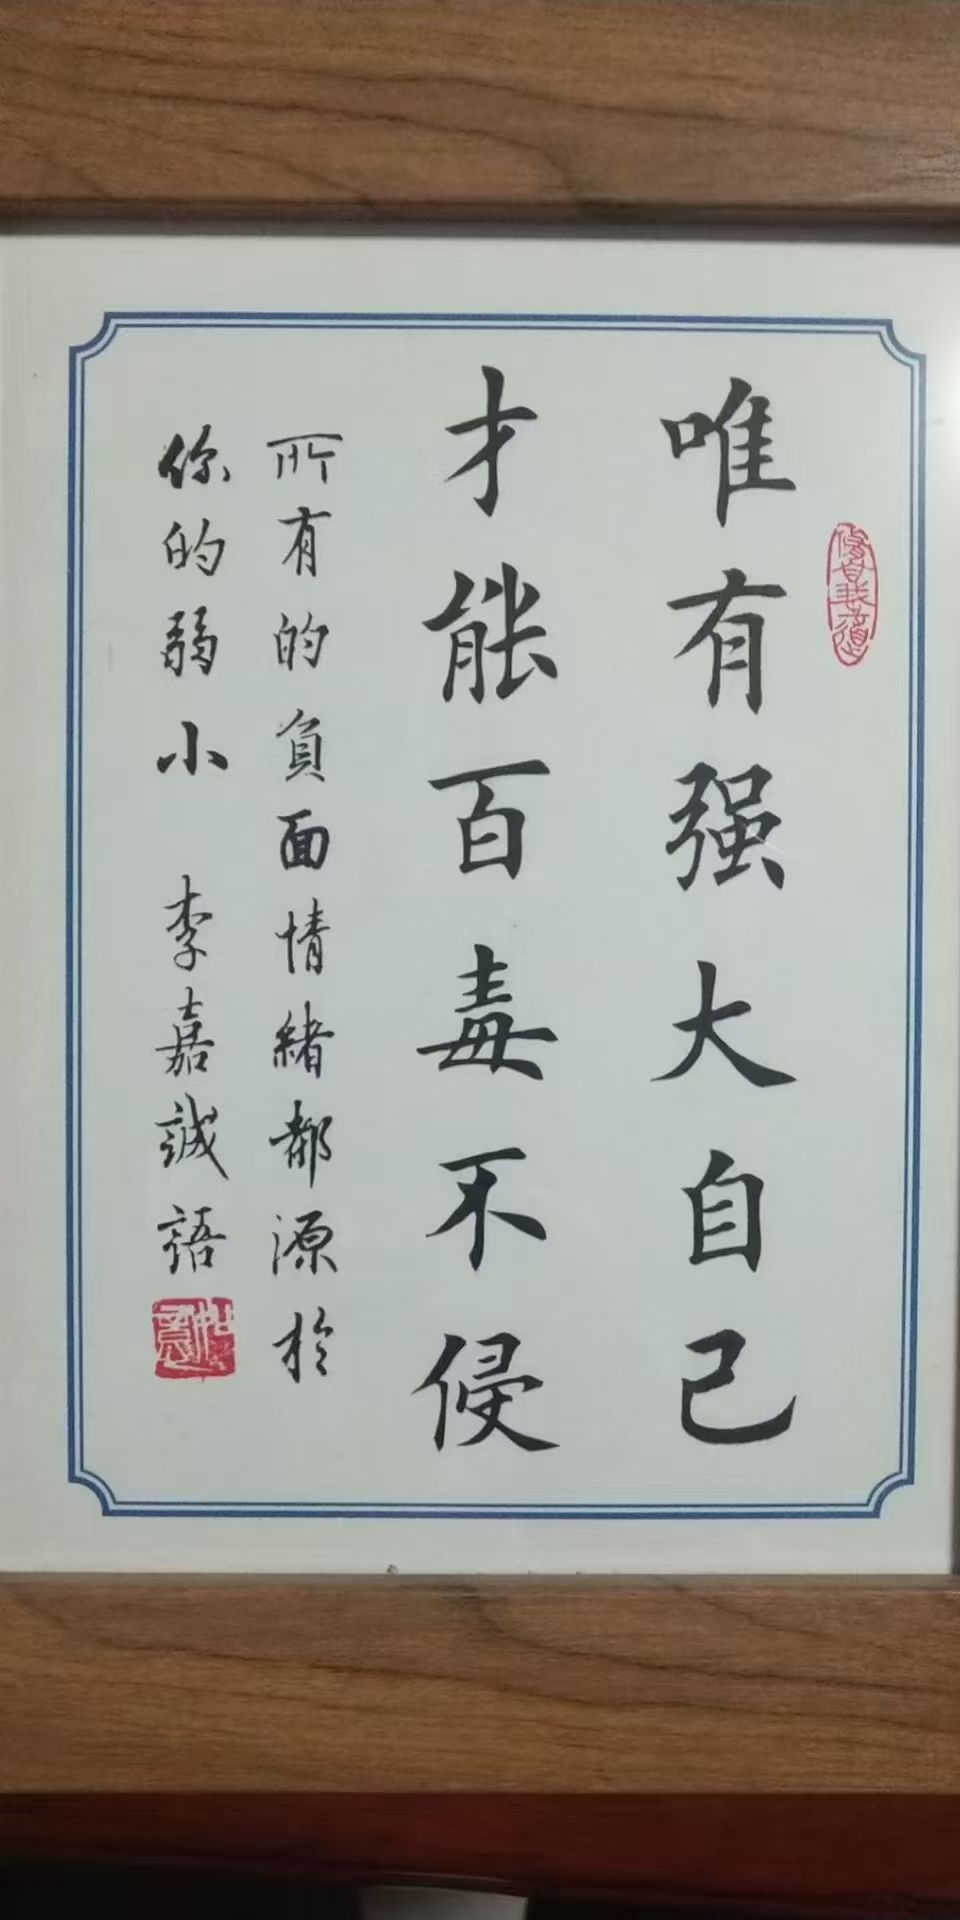 唯有强大自己
才能百毒不侵
所有的負面情緒都源於
你的弱小 李嘉誠語